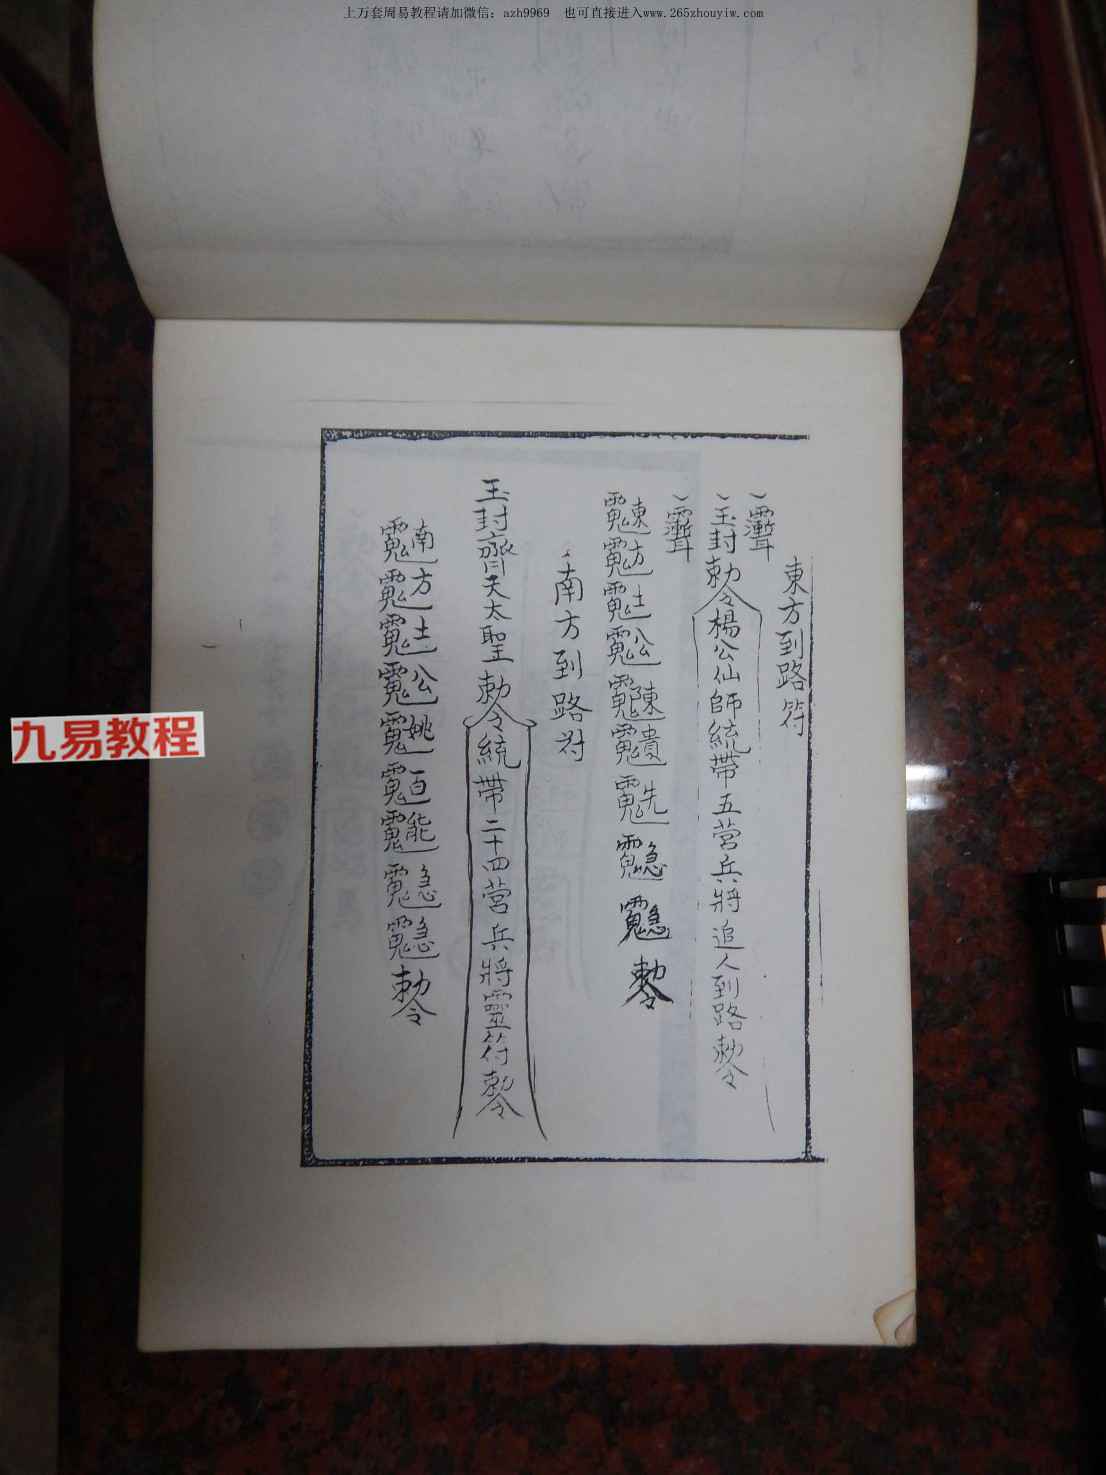 上万套周易教程请加微信：azh9969 也可直接进入www.265zhouyiw.com
東方到路符
玉封勅令楊公仙師統帶五营兵將追人到路勅令
東方土公陳貴先急急勅令
南方到路符
玉封齊天太聖勅令統帶二十四营兵將靈符勅令
南方土公姚百能急急勅令
九易教程